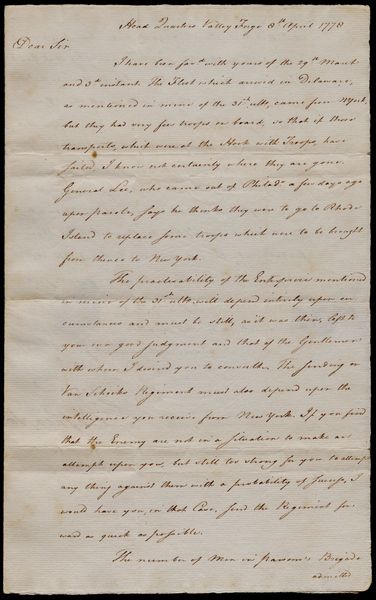 Head Quarters Valley Forge 8th April 1778
Dear Sir
I have been favd. with yours of the 29th March
and 3d instant. The Fleet which arrived in Delaware,
as mentioned in mine of the 31st ulto, came from
but they had very few troops on board, so that if those
transports, which were at the Hook with Troops, have
sailed, I know not certainly where they are gone.
General Lee, who came out of Philada. a few days ago
upon parole, says he thinks they were to go to Rhode
Island to replace some troops which were to be brought
from thence to New York.
The practicability of the Enterprize mentioned
in mine of the 31st ulto. will depend entirely upon
circumstances and must be still, as it was then, left to
your own good judgment and that of the Gentlemen
with whom I desired you to consult. The sending on
Van Schaicks Regiment must also depend upon the
intelligence you receive from New York. If you find
that the Enemy are not in a situation to make an
attempt upon you, but still too strong for you to attempt
any thing against them with a probability of success, I
would have you, in that Case, send the Regiment for
ward as quick as possible.
The number of Men in Parsons's Brigade
admitted